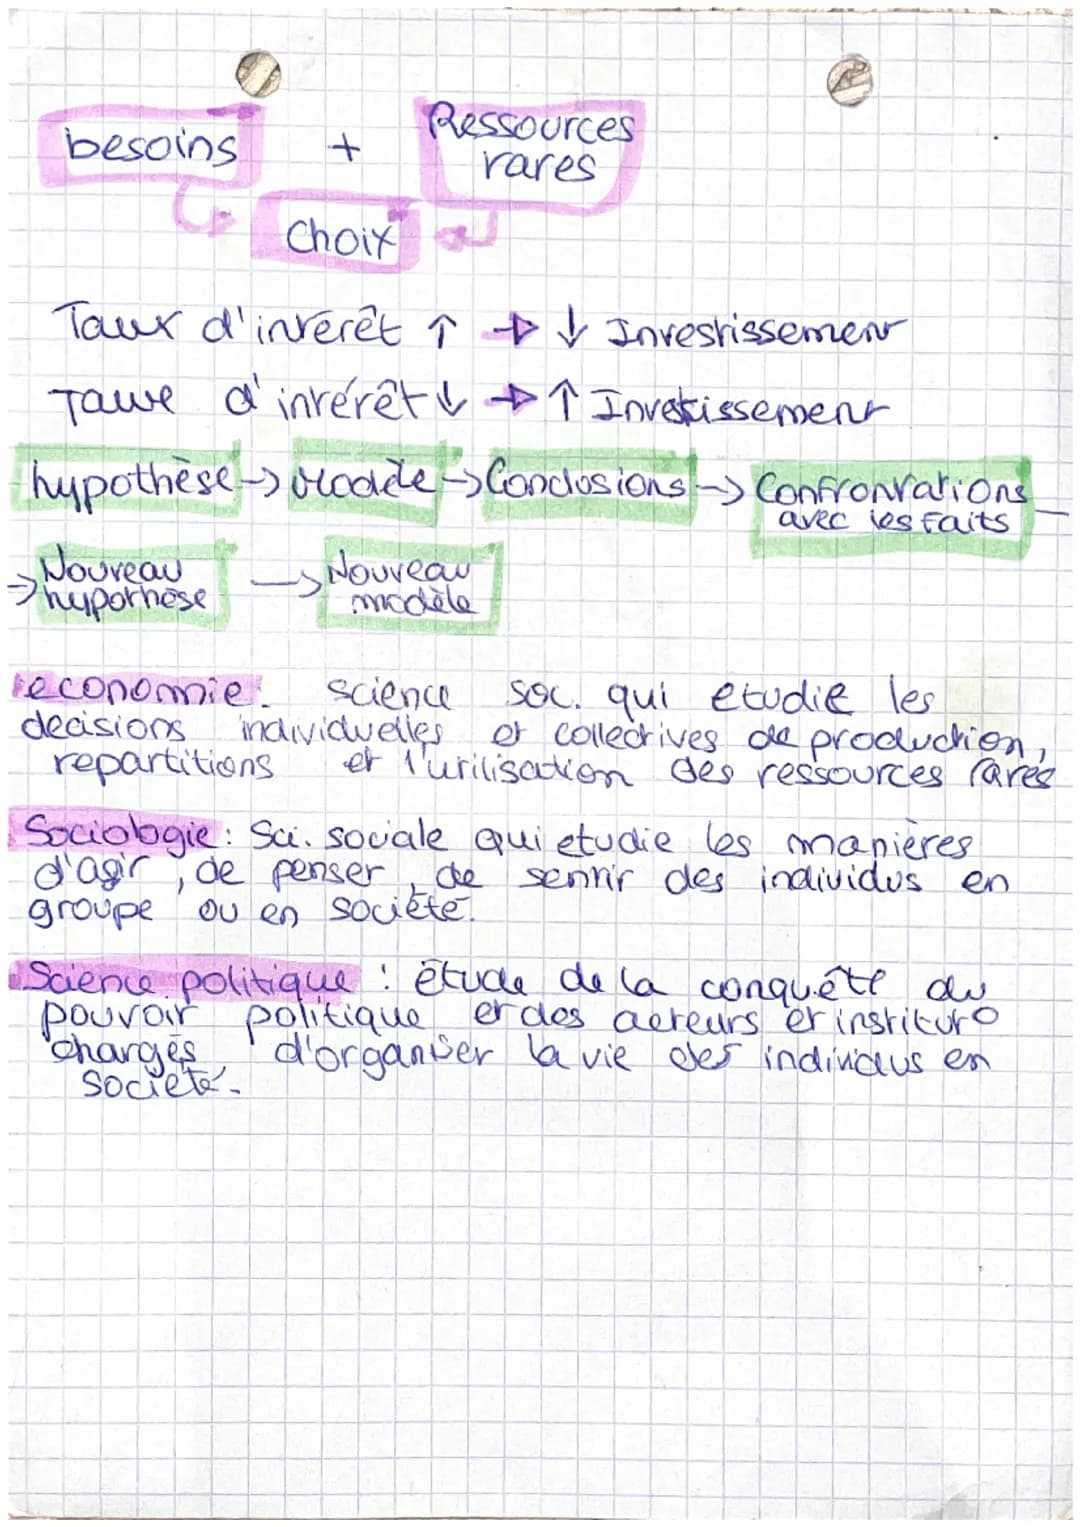 besoins + Ressources
rares
Choix
Taux d'intérêt ↑ → ↓ Investissement
Taux d'intérêt ↓ → ↑ Investissement
hypothèse → Modèle → Conclusions → Confrontations
avec les faits
→ Nouveau
hypothèse → Nouveau
modèle
economie: science soc. qui etudie les
decisions individuelles et collectives de production,
repartitions et l'utilisation des ressources rares
Sociologie : Sci. sociale qui etudie les manières
d'agir, de penser, de sentir des individus en
groupe ou en société.
Science politique : étude de la conquête du
pouvoir politique et des acteurs et institut°
chargés d'organiser la vie des individus en
société.